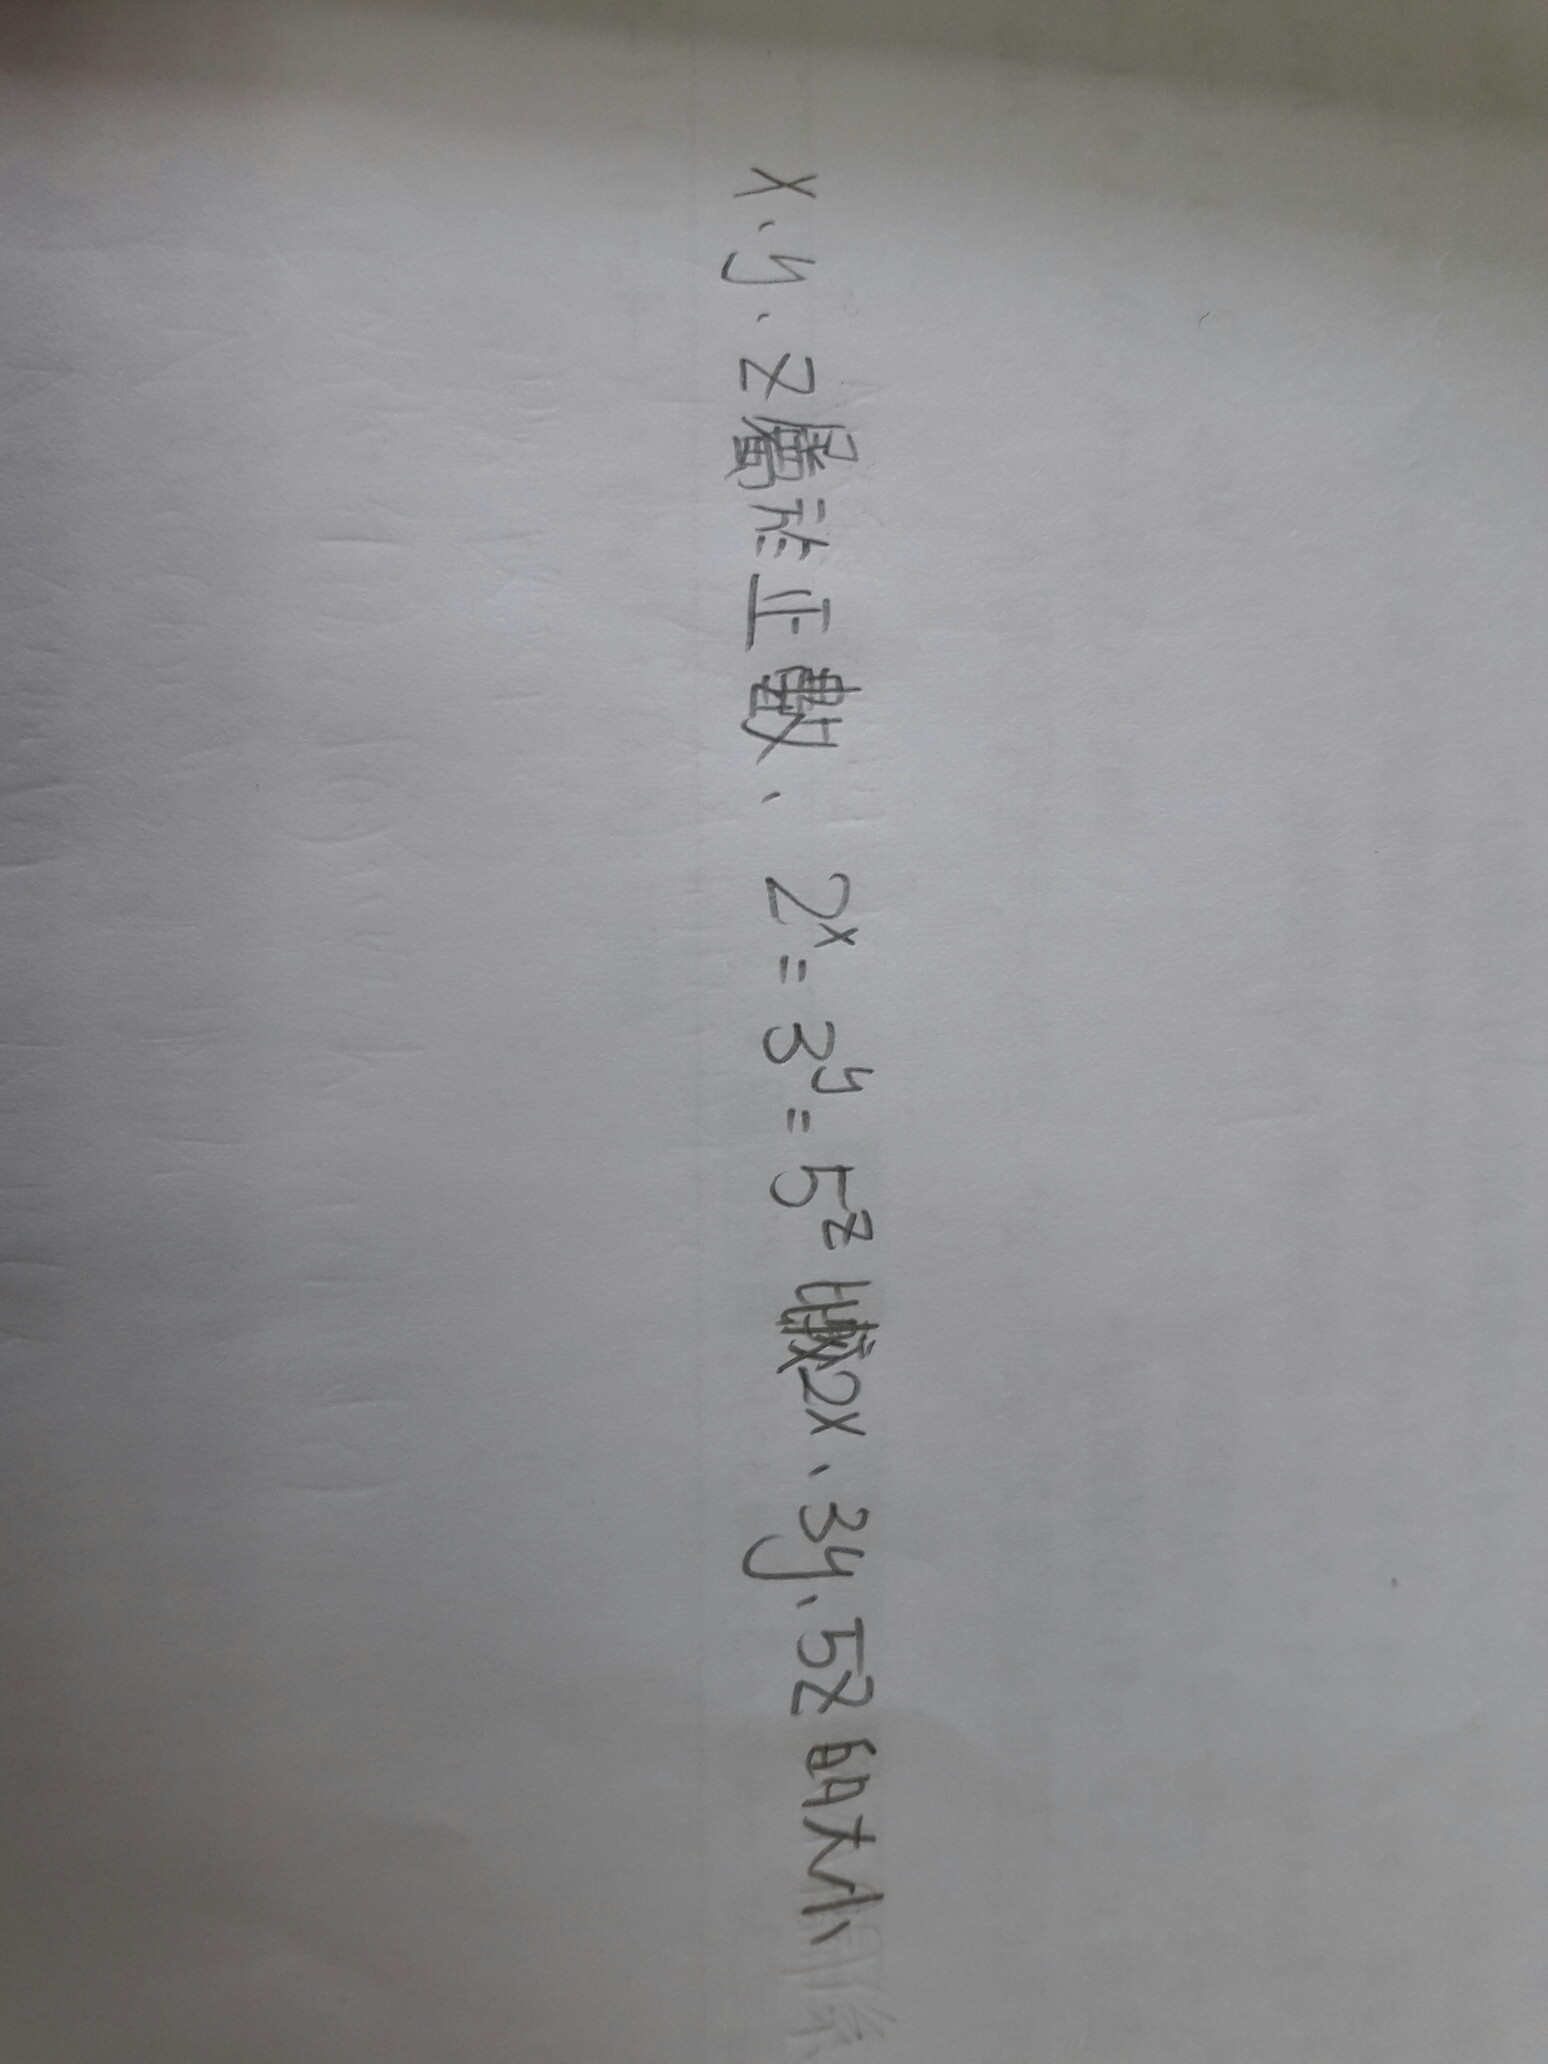 x、y、z屬於正數、2^x=3^y=5^z比較2x、3y、5z的大小